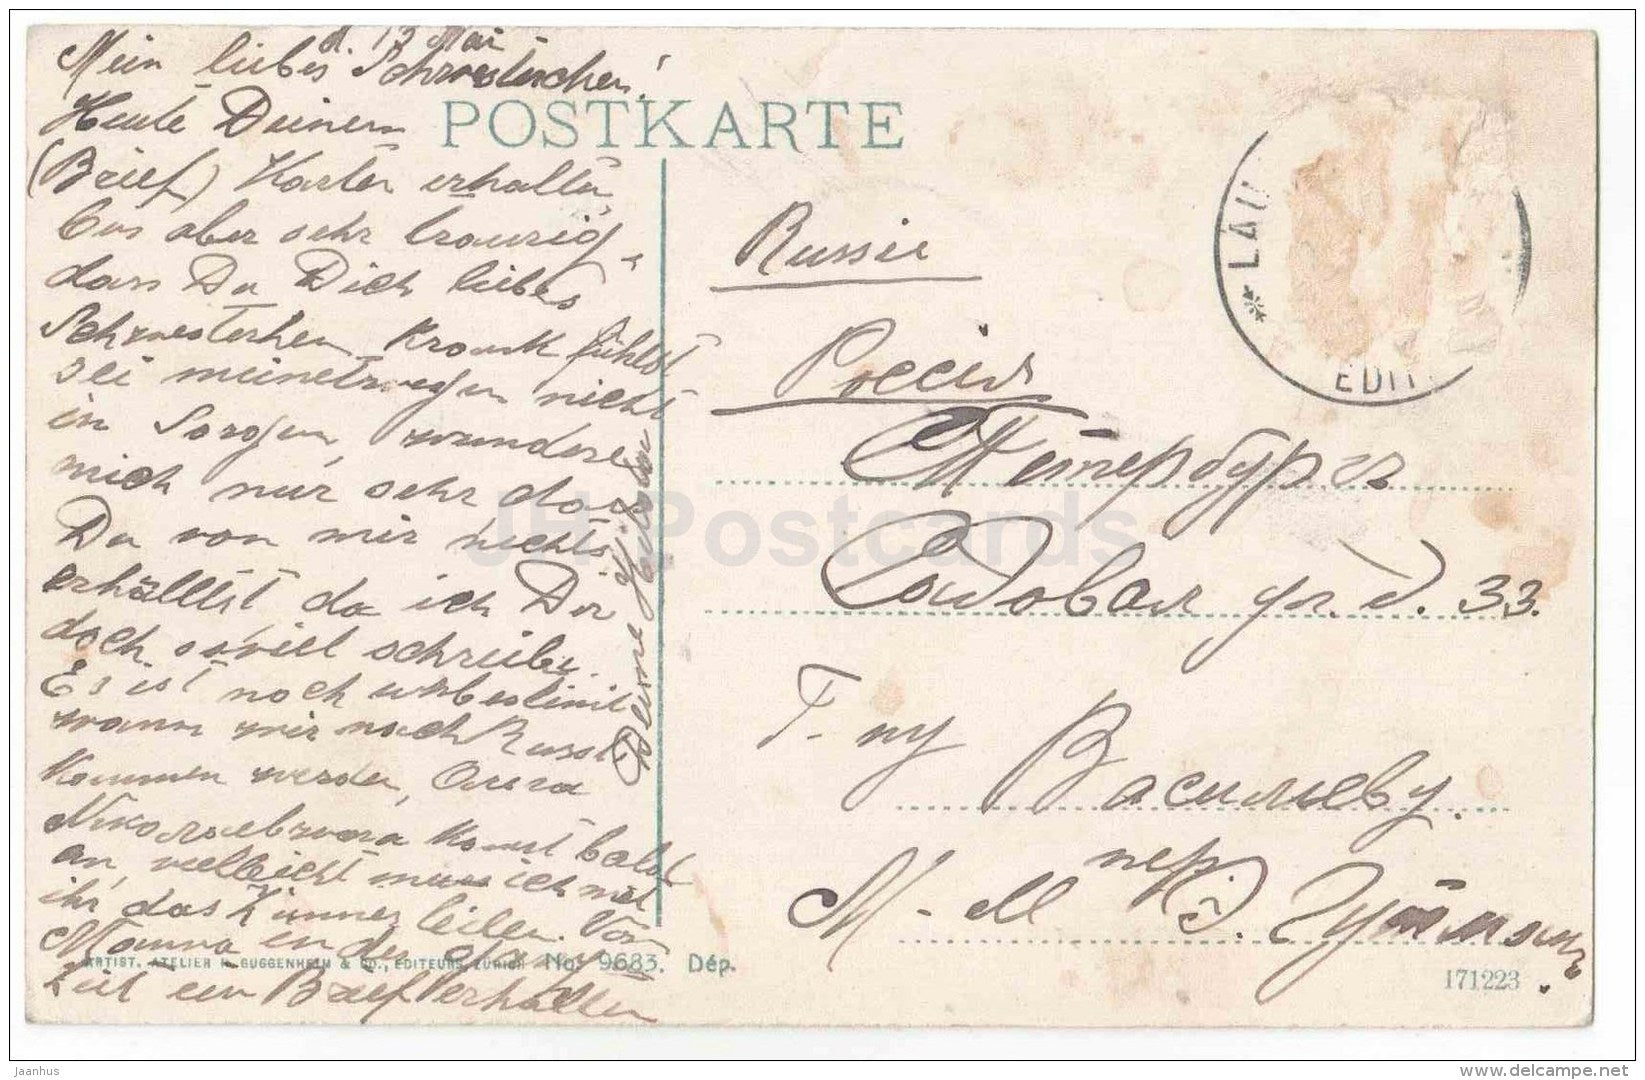 d. 13 Mai
Mein liebes Schwesterchen!
Heute Deinem
(Brief) Karte erhalten,
bin aber sehr traurig
dass Du Dich liebes
Schwesterhen Krank fühlst
sei meinetwegen nicht
in Sorgen, wundere
mich nur sehr dass
Du von mir nichts
erhälltst, da ich Dir
doch soviel schreibe.
Es ist noch unbestimt
wann wir nach Russl
kommen werden,
Nikolaewna komt bald
an, vielleicht muss ich mit
ihr das Zimmer teilen. Von
Mamma in der
Zeit ein Brief erhalten
Deine
POSTKARTE
* LAU
EDIT
Russie
Россія
С Петербургъ
Садовая ул. д. 33.
Г-ну Васильеву.
пер.
М-ll Э.
ARTIST. ATELIER H. GUGGENHEIM & Co., EDITEURS, ZÜRICH No. 9683. Dép.
171223
JH Postcards
Jaanhus
www.delcampe.net